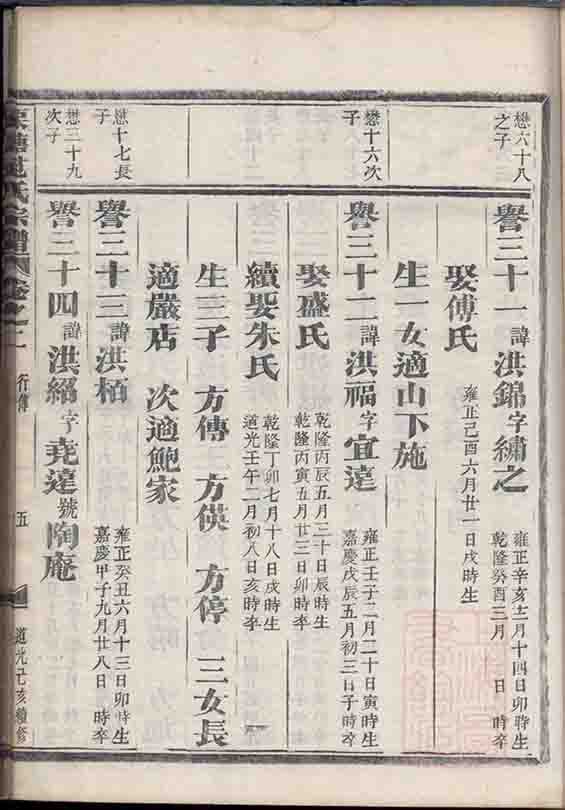 懋六十八
之子
譽三十一 諱洪錦字繡之
雍正辛亥十二月十四日卯時生
乾隆癸酉三月 日 時卒
娶傅氏
雍正己酉六月廿一日戌時生
生一女適山下施
懋十六次
子
譽三十二 諱洪福字宜達
雍正壬子二月二十日寅時生
嘉慶戊辰五月初三日子時卒
娶盛氏
乾隆丙辰五月三十日辰時生
乾隆丙寅五月廿三日卯時卒
續娶朱氏
乾隆丁卯七月十八日戌時生
道光壬午二月初八日亥時卒
生三子 方傳 方供 方停 三女長
適嚴店 次適鮑家
懋十七長
子
譽三十三 諱洪栢
雍正癸丑六月十三日卯時生
嘉慶甲子九月廿八日 時卒
懋三十九
次子
譽三十四 諱洪縉字堯達號陶庵
氏宗譜 卷之二 行傳 五 道光己亥續修